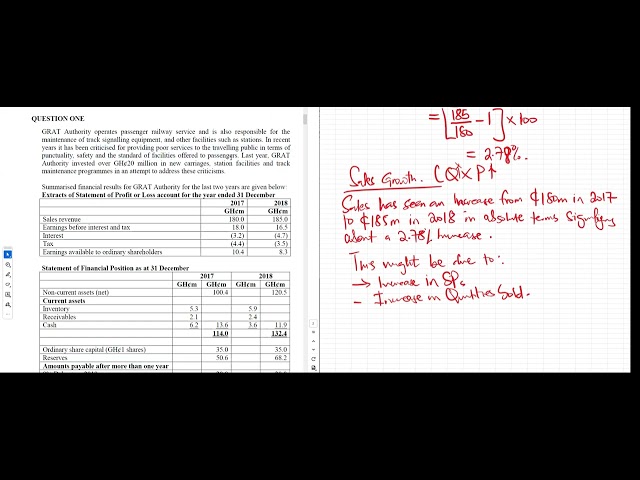 QUESTION ONE
GRAT Authority operates passenger railway service and is also responsible for the
maintenance of track signalling equipment, and other facilities such as stations. In recent
years it has been criticised for providing poor services to the travelling public in terms of
punctuality, safety and the standard of facilities offered to passengers. Last year, GRAT
Authority invested over GH¢20 million in new carriages, station facilities and track
maintenance programmes in an attempt to address these criticisms.
Summarised financial results for GRAT Authority for the last two years are given below
Extracts of Statement of Profit or Loss account for the year ended 31 December
2017 2018
GH¢m GH¢m
Sales revenue 180.0 185.0
Earnings before interest and tax 18.0 16.5
Interest (3.2) (4.7)
Tax (4.4) (3.5)
Earnings available to ordinary shareholders 10.4 8.3
Statement of Financial Position as at 31 December
2017 2018
GH¢m GH¢m GH¢m GH¢m
Non-current assets (net) 100.4 120.5
Current assets
Inventory 5.3 5.9
Receivables 2.1 2.4
Cash 6.2 13.6 3.6 11.9
114.0 132.4
Ordinary share capital (GH¢1 shares) 35.0 35.0
Reserves 50.6 68.2
Amounts payable after more than one year
= [185/180 - 1] × 100
= 2.78%.
Sales Growth. (Q↑ × P↑
Sales has seen an increase from ¢180m in 2017
to ¢185m in 2018 in absolute terms signifying
about a 2.78% increase.
This might be due to:
→ Increase in SPs
- Increase in Quantities Sold.